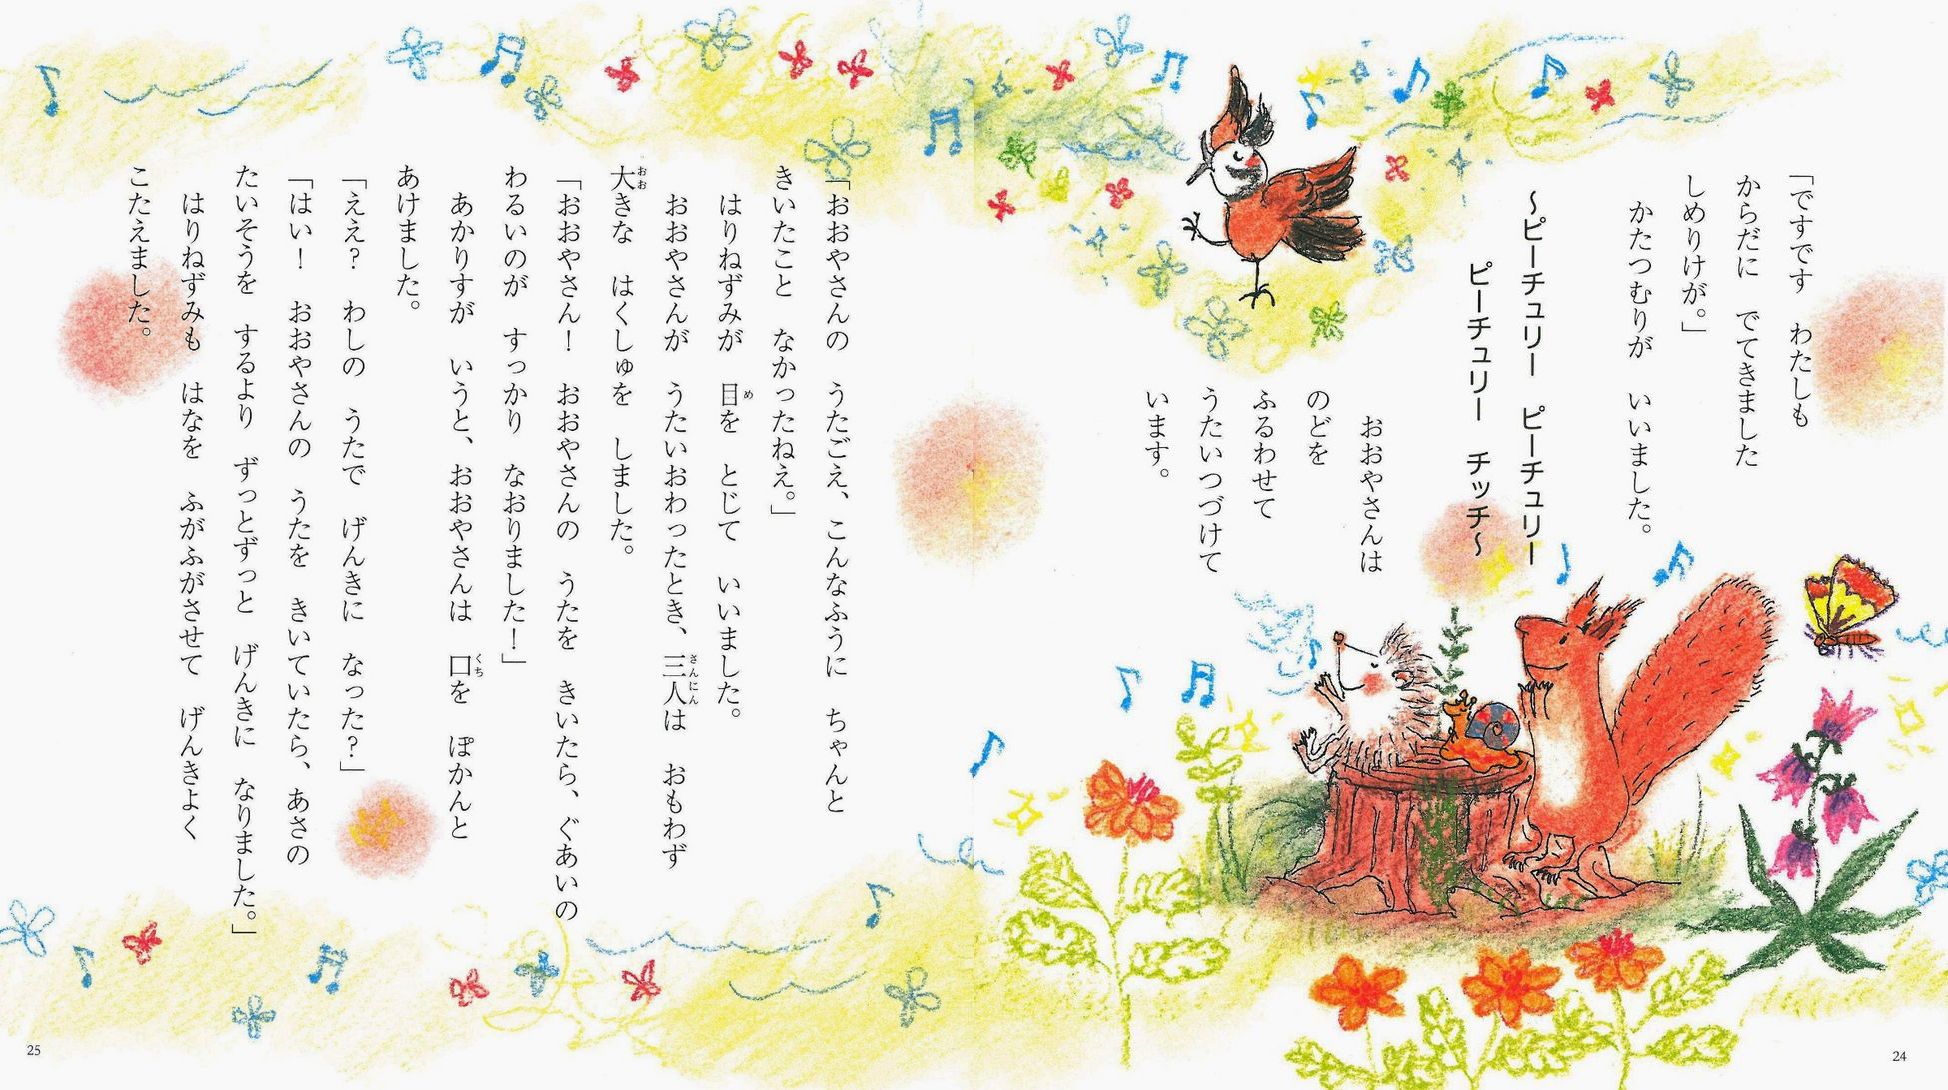 「ですです　わたしも
からだに　でてきました
しめりけが。」
　かたつむりが　いいました。
～ピーチュリー　ピーチュリー
　　ピーチュリー　チッチ～
　おおやさんは
のどを
ふるわせて
うたいつづけて
います。
24
「おおやさんの　うたごえ、こんなふうに　ちゃんと
きいたこと　なかったねえ。」
　はりねずみが　目を　とじて　いいました。
　おおやさんが　うたいおわったとき、三人は　おもわず
大きな　はくしゅを　しました。
「おおやさん！　おおやさんの　うたを　きいたら、ぐあいの
わるいのが　すっかり　なおりました！」
　あかりすが　いうと、おおやさんは　口を　ぽかんと
あけました。
「ええ？　わしの　うたで　げんきに　なった？」
「はい！　おおやさんの　うたを　きいていたら、あさの
たいそうを　するより　ずっとずっと　げんきに　なりました。」
　はりねずみも　はなを　ふがふがさせて　げんきよく
こたえました。
25